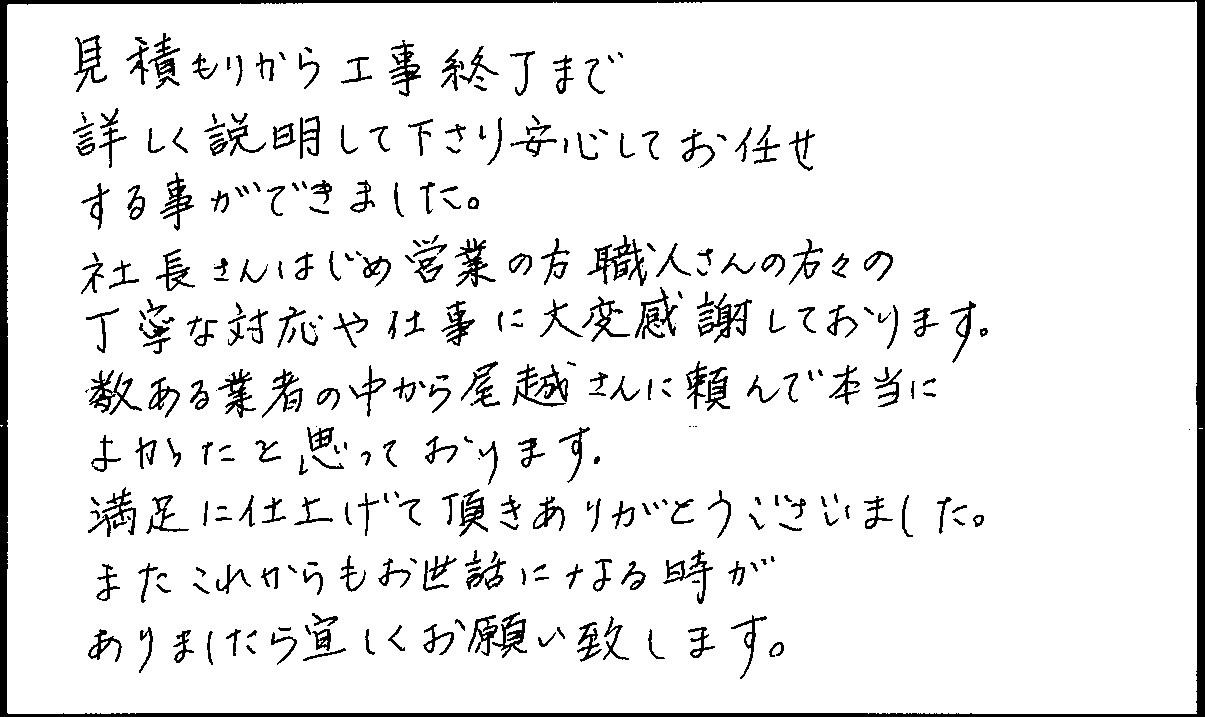 見積もりから工事終了まで
詳しく説明して下さり安心してお任せ
する事ができました。
社長さんはじめ営業の方職人さんの方々の
丁寧な対応や仕事に大変感謝しております。
数ある業者の中から尾越さんに頼んで本当に
よかったと思っております.
満足に仕上げて頂きありがとうございました。
またこれからもお世話になる時が
ありましたら宜しくお願い致します。